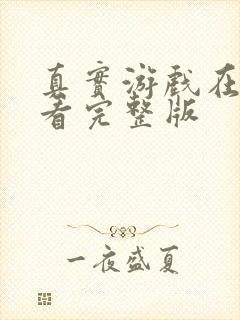 真實游戲在
看完整版
一夜盛夏